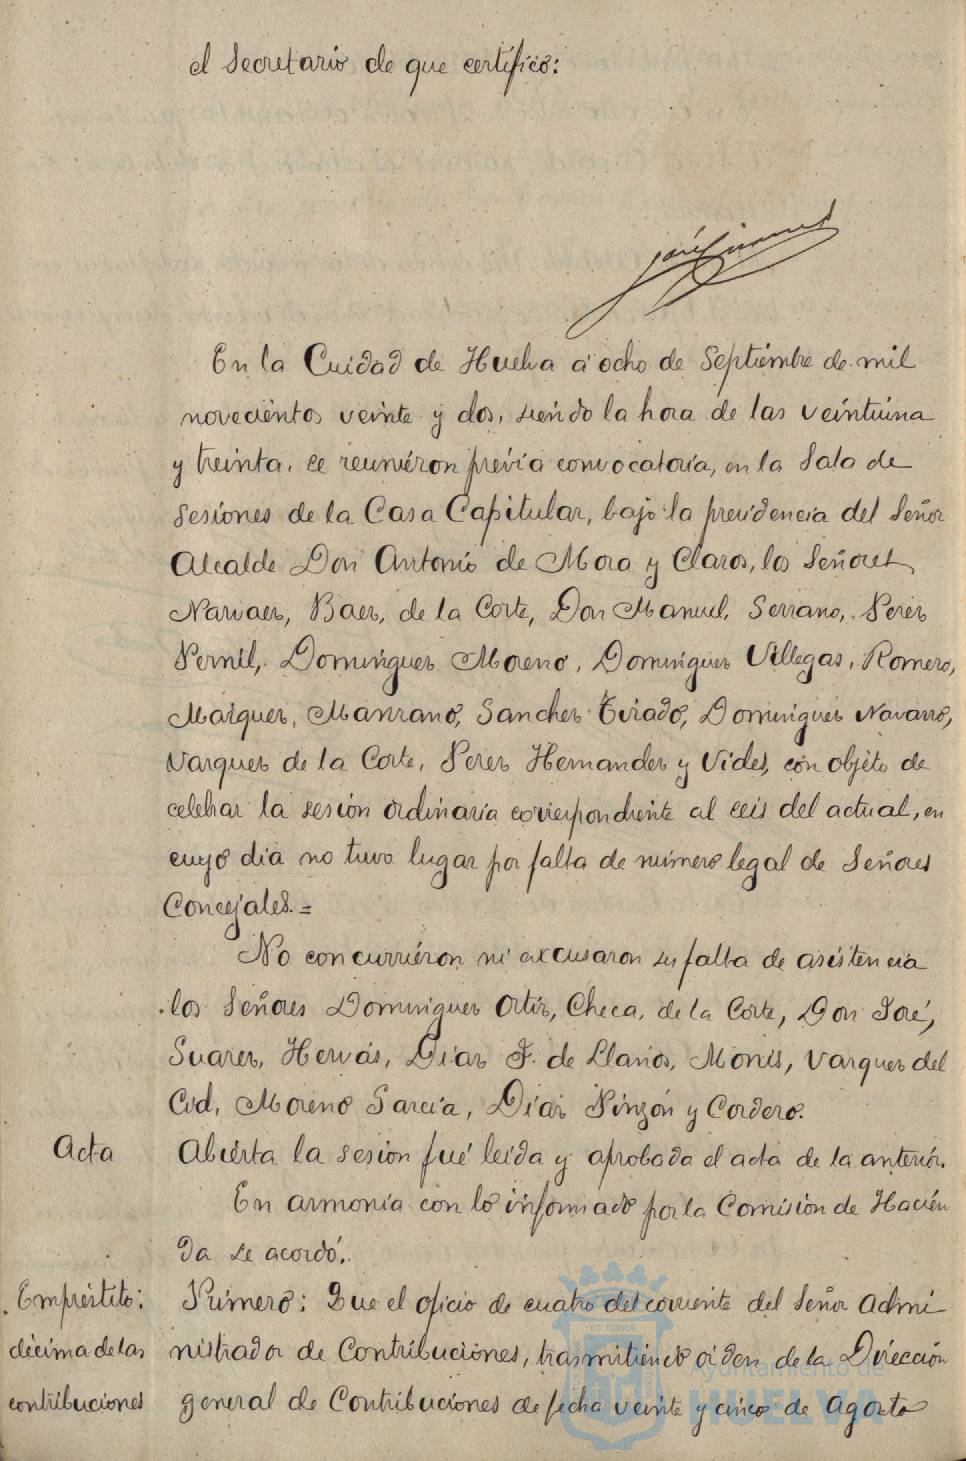 el Secretario de que certifico:
José Jimenez
En la Cuidad de Huelva a ocho de Septiembre de mil
novecientos veinte y dos, siendo la hora de las veintiuna
y treinta, se reunieron previa convocatoria, en la Sala de
Sesiones de la Casa Capitular, bajo la presidencia del Señor
Alcalde Don Antonio de Mora y Claros, los Señores
Narvaez, Baez, de la Corte, Don Manuel, Serrano, Perez
Pernil, Dominguez Moreno, Dominguez Villegas, Romero,
Marquez, Manzano, Sanchez Tirado, Dominguez Navarro,
Vazquez de la Corte, Perez Hernandez y Vides, con objeto de
celebrar la sesión ordinaria correspondiente al seis del actual, en
cuyo dia no tuvo lugar por falta de número legal de Señores
Concejales.=
No concurrieron ni excusaron su falta de asistencia
los Señores Dominguez Ortiz, Checa, de la Corte, Don José,
Suarez, Hervás, Diaz F. de Llanos, Monis, Vazquez del
Cid, Moreno Garcia, Diaz Pinzón y Cordero.
Acta
Abierta la sesion fué leida y aprobada el acta de la anterior.
En armonia con lo informado por la Comision de Hacien
da se acordó:
Empréstito:
décima de las
contribuciones
Primero: Que el oficio de cuatro del corriente del Señor Admi
nistrador de Contribuciones, trasmitiendo orden de la Dirección
general de Contribuciones de fecha veinte y cinco de Agosto
ET TERRA
Ayuntamiento de
HUELVA